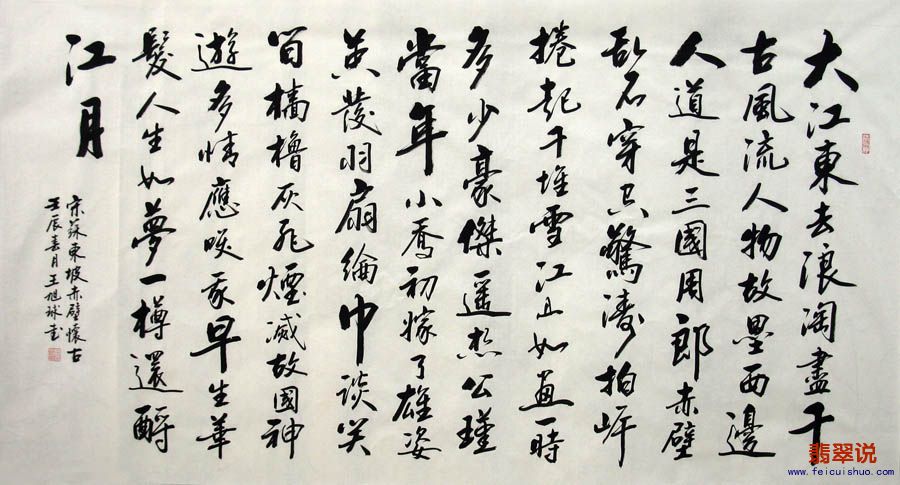 大江東去浪淘盡千
古風流人物故壘西邊
人道是三國周郎赤壁
乱石穿空驚濤拍岸
捲起千堆雪江山如畫一時
多少豪傑遥想公瑾
當年小喬初嫁了雄姿
英發羽扇綸巾談笑
間檣櫓灰飛煙滅故國神
遊多情應笑我早生華
髮人生如夢一樽還酹
江月
宋蘇東坡赤壁懷古
壬辰春月王旭球書
翡翠说
www.feicuishuo.com